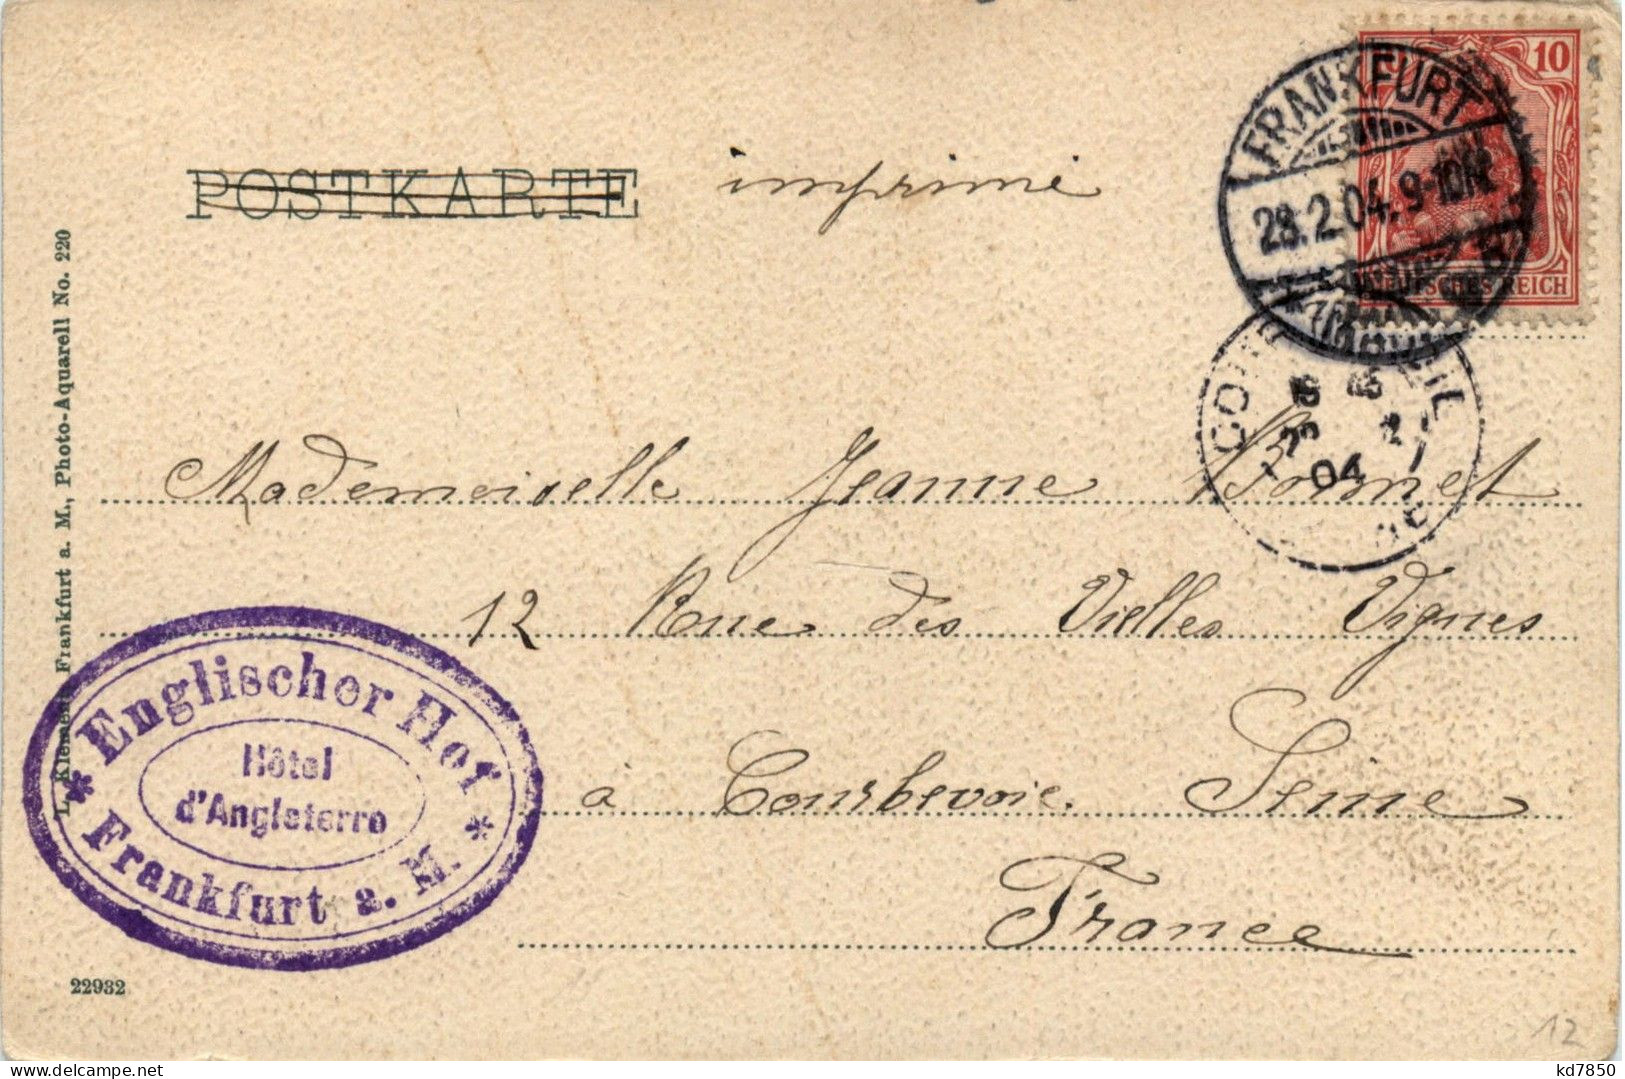 10 10
FRANKFURT
28.2.04. 9-10N.
DEUTSCHES REICH
POSTKARTE imprimé
04
Mademoiselle Jeanne Bonnet
12 Rue des Vielles Vignes
à Courbevoie. Seine
France
Englischer Hof
Hôtel
d'Angleterre
Frankfurt a. M.
L. Klement, Frankfurt a. M., Photo-Aquarell No. 220
22932
12
kd7850